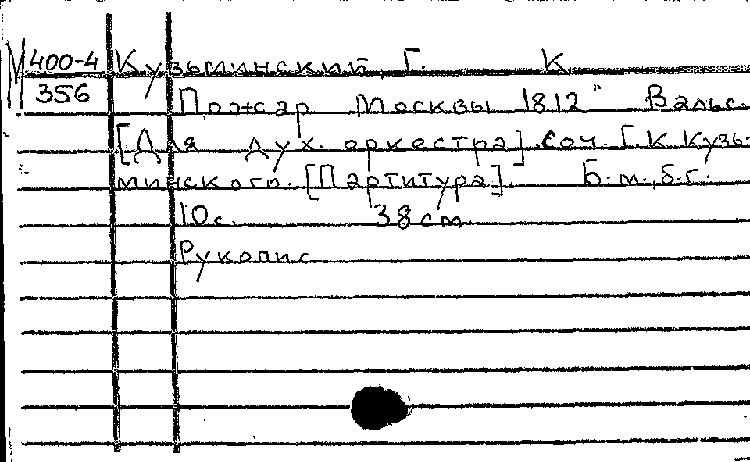 М 400-4 Кузьминский, Г. К
356 Пожар Москвы 1812" Вальс.
[Для дух. оркестра] Соч. Г.К. Кузь-
минского. [Партитура]. Б.м., б.г.
10с. 38см
Рукопис